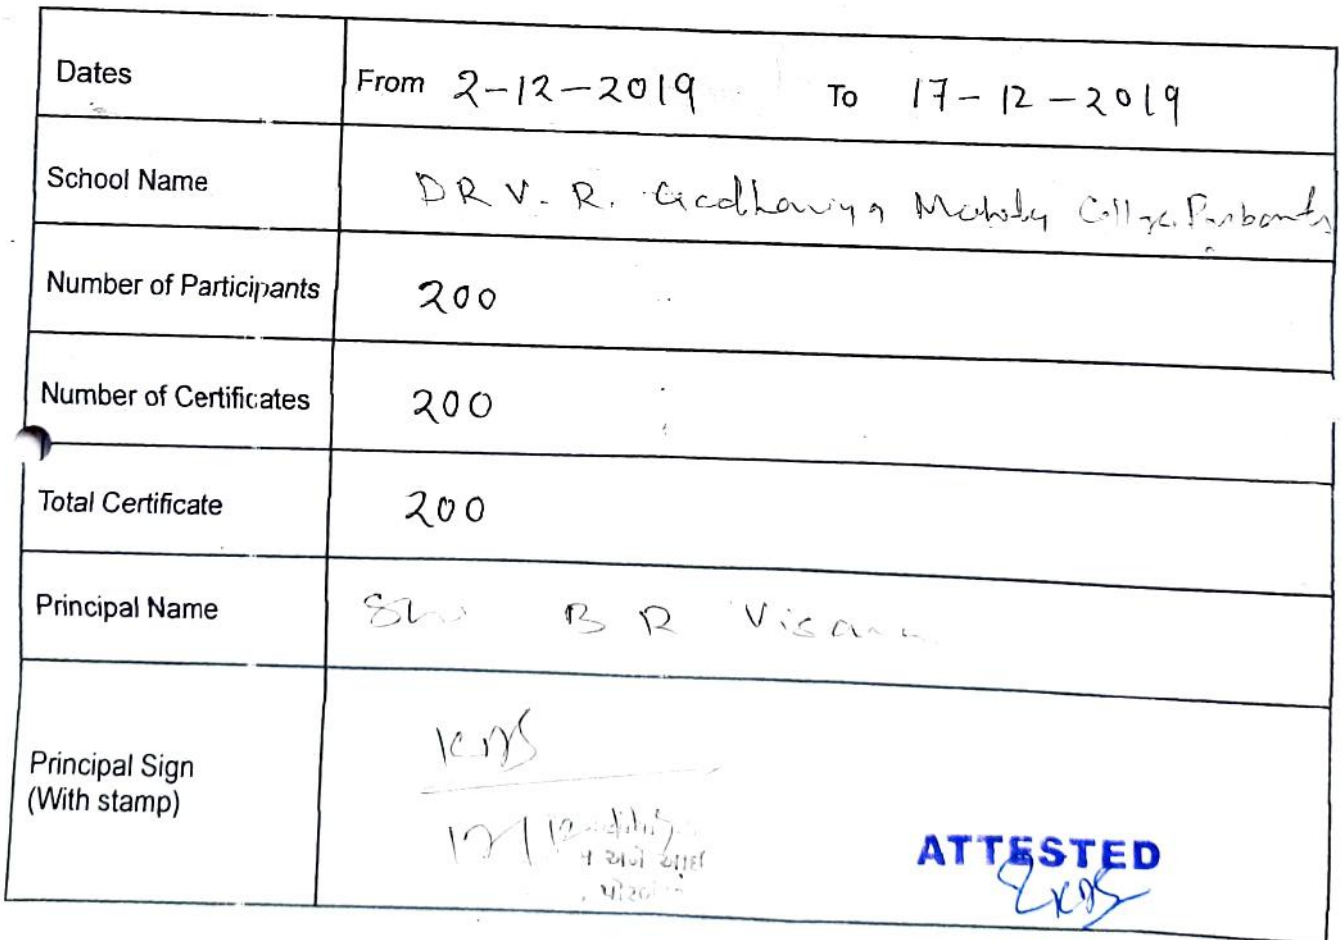 Dates From 2-12-2019 To 17-12-2019
School Name DR V. R. College
Number of Participants 200
Number of Certificates 200
Total Certificate 200
Principal Name B R
Principal Sign
(With stamp)
ATTESTED